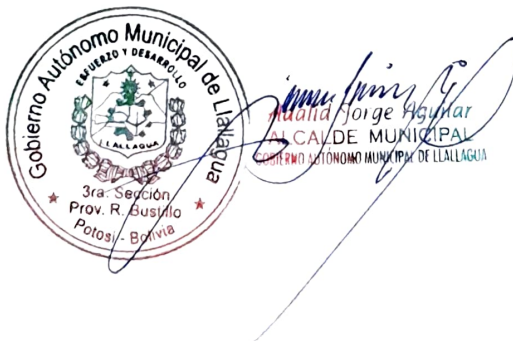 Gobierno Autónomo Municipal de Llallagua
ESFUERZO Y DESARROLLO
LLALLAGUA
3ra. Sección
Prov. R. Bustillo
Potosí - Bolivia
Adalid Jorge Aguilar
ALCALDE MUNICIPAL
GOBIERNO AUTÓNOMO MUNICIPAL DE LLALLAGUA